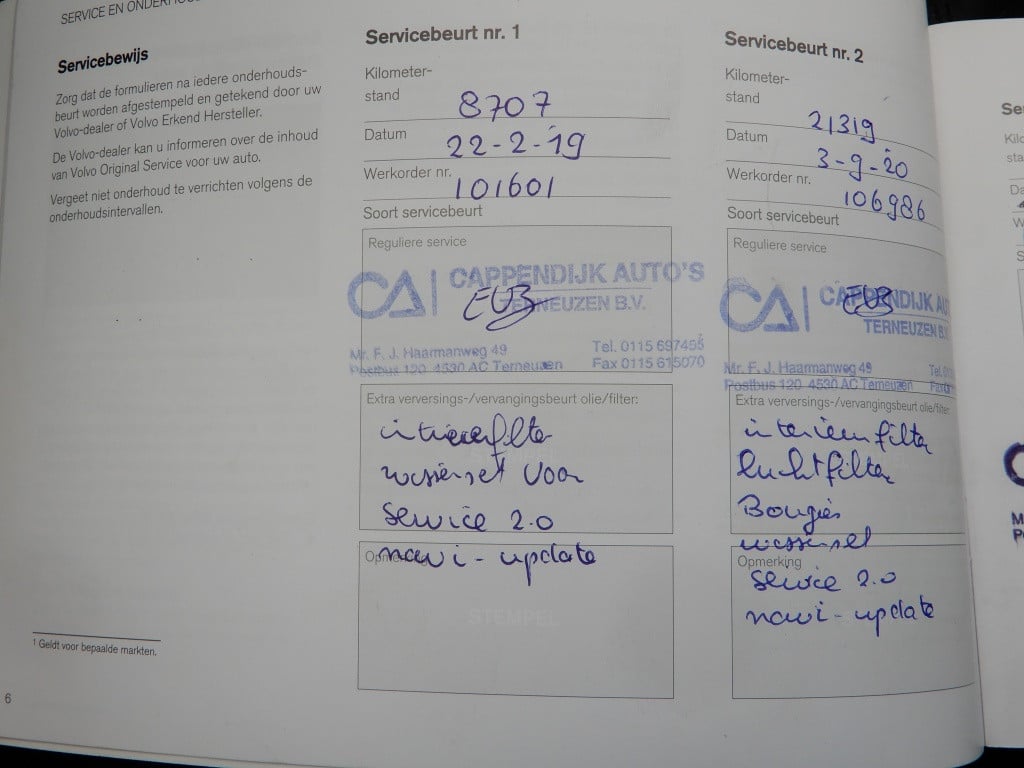 SERVICE EN ONDERHOU
Servicebewijs
Zorg dat de formulieren na iedere onderhouds-
beurt worden afgestempeld en getekend door uw
Volvo-dealer of Volvo Erkend Hersteller.
De Volvo-dealer kan u informeren over de inhoud
van Volvo Original Service voor uw auto.
Vergeet niet onderhoud te verrichten volgens de
onderhoudsintervallen.
1 Geldt voor bepaalde markten.
6
Servicebeurt nr. 1
Kilometer-
stand 8707
Datum 22-2-'19
Werkorder nr. 101601
Soort servicebeurt
Reguliere service
CA CAPPENDIJK AUTO'S
TERNEUZEN B.V.
Mr. F. J. Haarmanweg 49 Tel. 0115 697455
Postbus 120 4530 AC Terneuzen Fax 0115 615070
Extra verversings-/vervangingsbeurt olie/filter:
wisserset voor
Service 2.0
navi-update
STEMPEL
Servicebeurt nr. 2
Kilometer-
stand 21319
Datum 3-9-20
Werkorder nr. 106986
Soort servicebeurt
Reguliere service
CA CAPPENDIJK AU
TERNEUZEN B.
Mr. F. J. Haarmanweg 49 Tel.
Postbus 120 4530 AC Terneuzen
Extra verversings-/vervangingsbeurt olie/filter
interieurfilter
luchtfilter
Bougies
wisserset
Opmerking
Service 2.0
navi-update